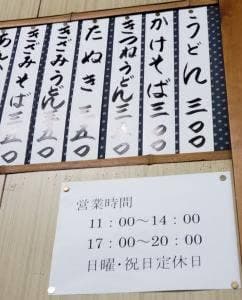 うどん 三〇〇
かけそば 三〇〇
きつねうどん 三五〇
たぬき 三五〇
きざみうどん 三五〇
きざみそば 三五〇
営業時間
11：00～14：00
17：00～20：00
日曜・祝日定休日